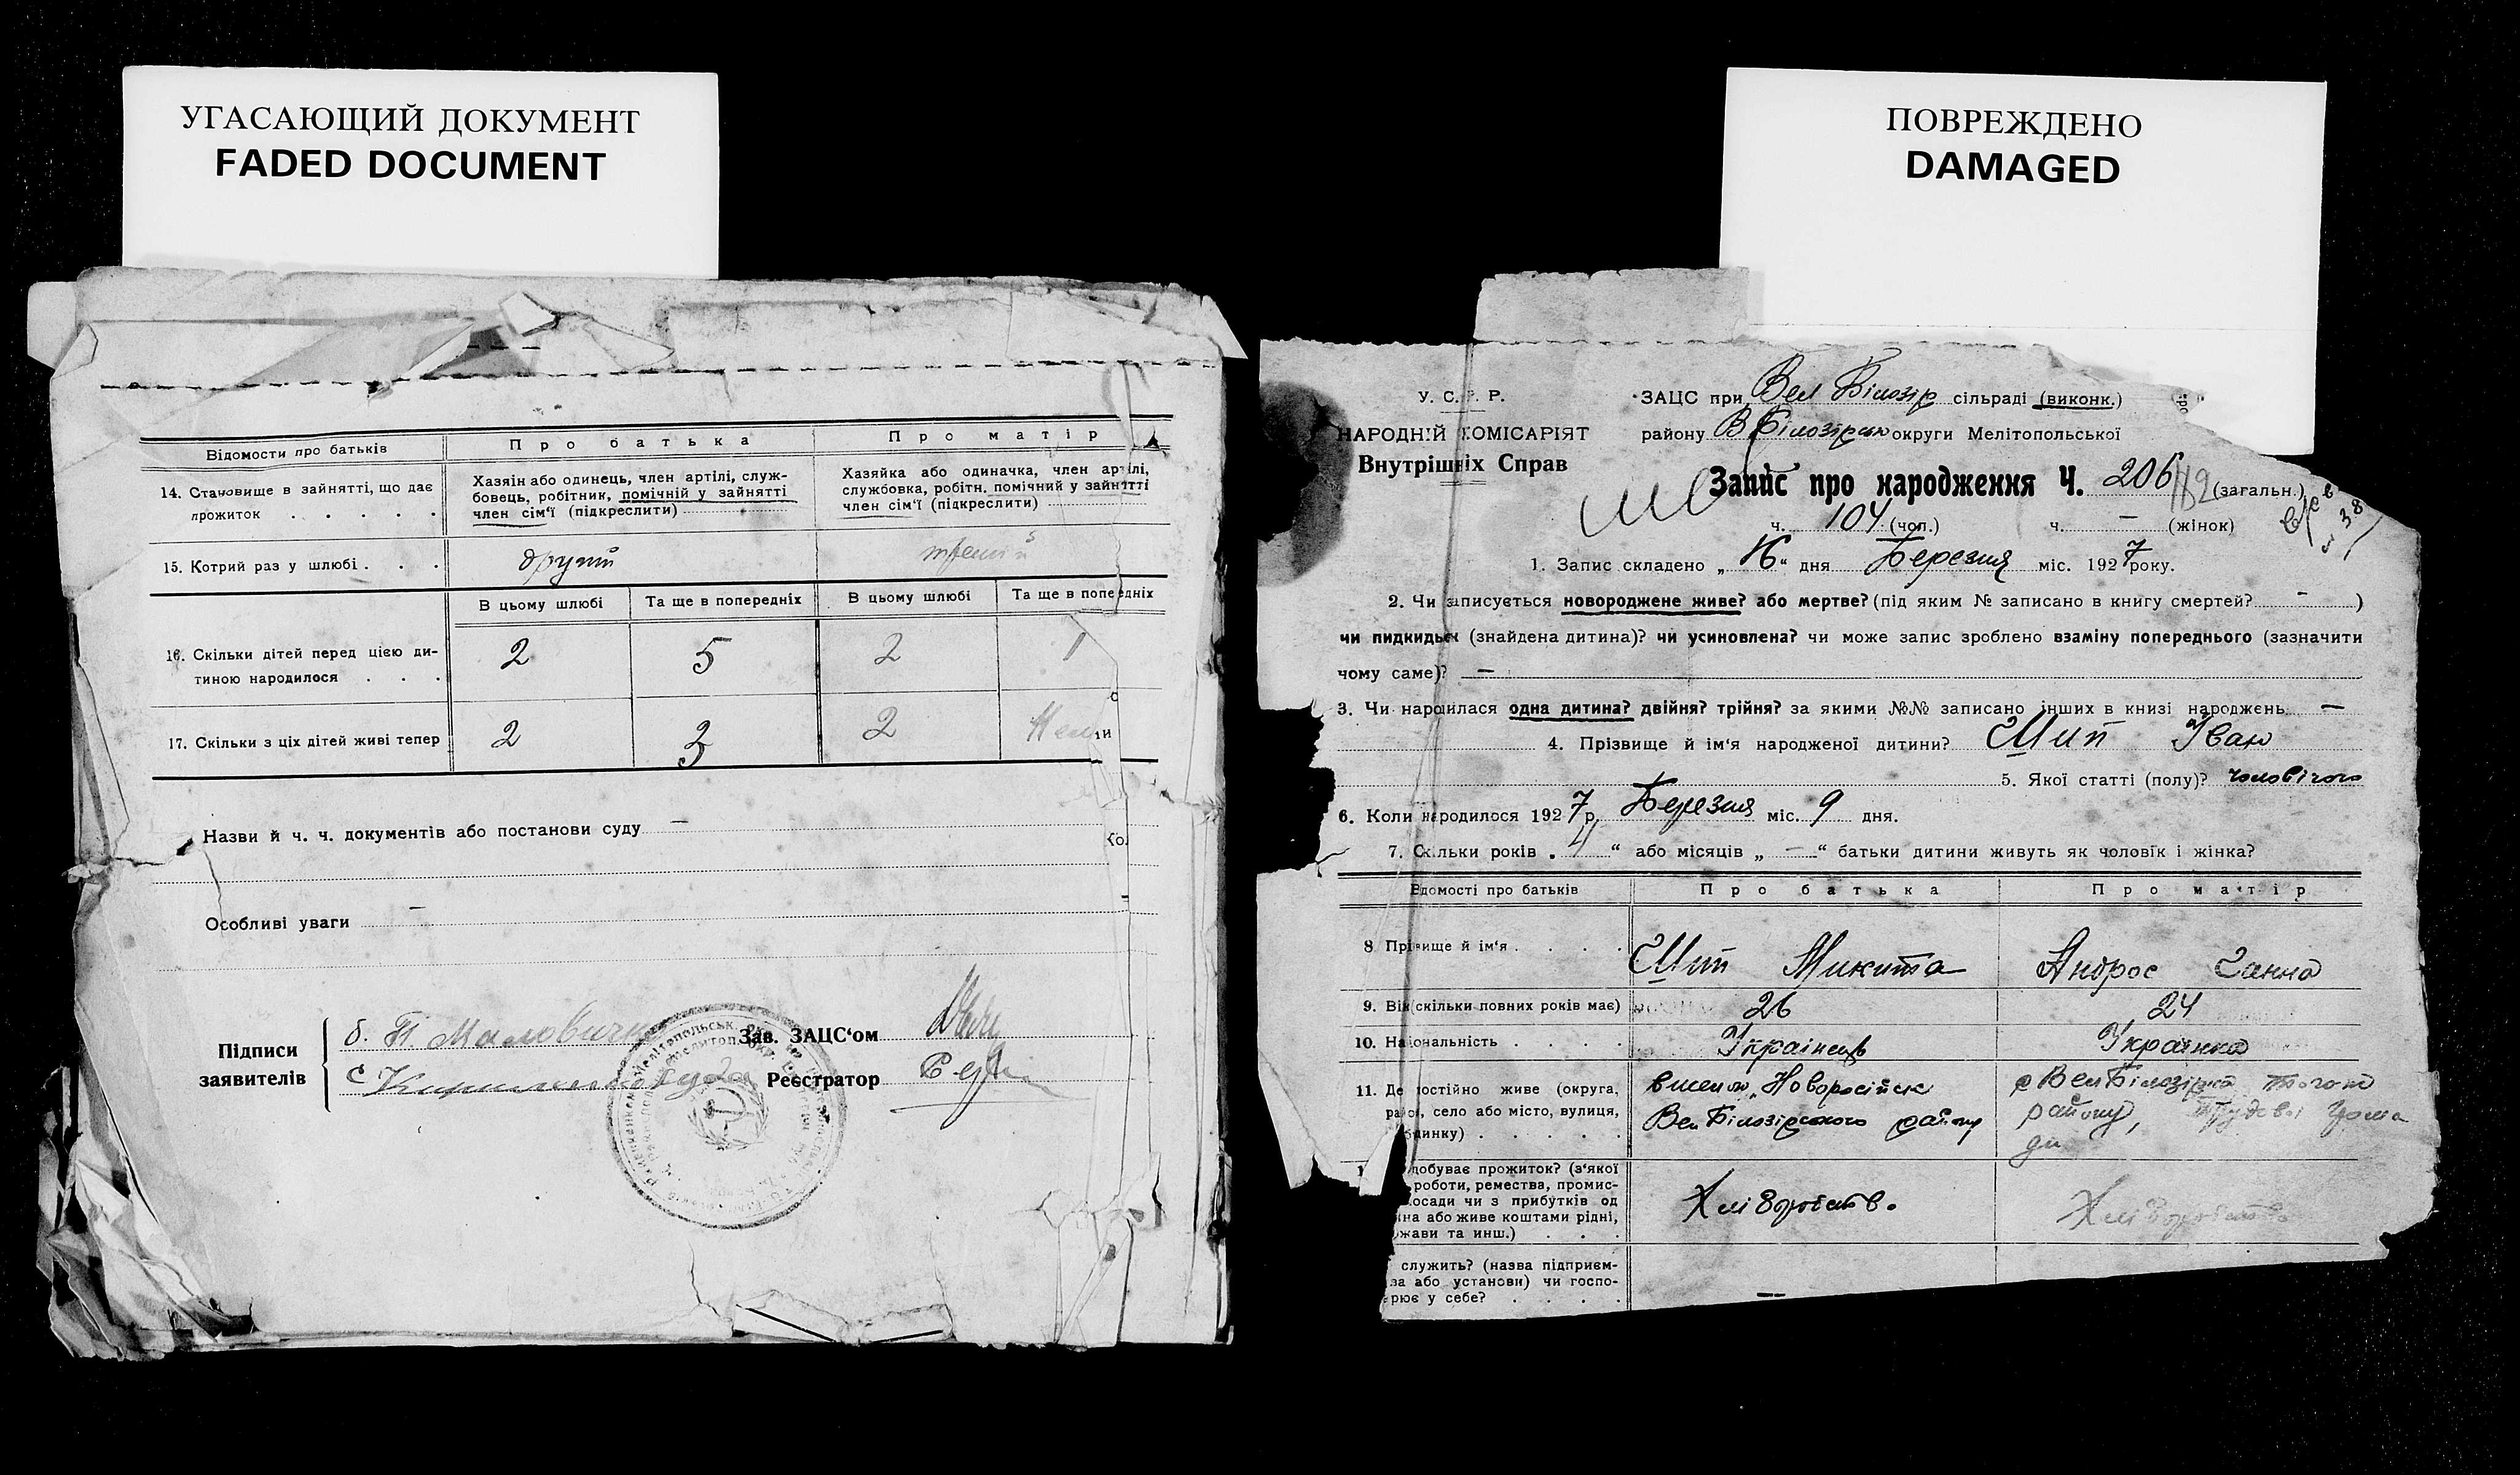 УГАСАЮЩИЙ ДОКУМЕНТ
FADED DOCUMENT
Відомости про батьків
Про батька
Про матір
14. Становище в зайнятті, що дає прожиток . . . . .
Хазяін або одинець, член артілі, служ-
бовець, робітник, помічній у зайнятті
член сім'ї (підкреслити)
Хазяйка або одиначка, член артілі,
службовка, робітн. помічний у зайнятті
член сім'ї (підкреслити)
15. Котрий раз у шлюбі . . .
другий
третій
В цьому шлюбі
Та ще в попередніх
В цьому шлюбі
Та ще в попередніх
16. Скільки дітей перед цією ди-
тиною народилося . . .
2 5 2 1
17. Скільки з ціх дітей живі тепер
2 2
Назви й ч. ч. документів або постанови суду —
Особливі уваги —
Підписи
заявителів
Зав. ЗАЦС'ом
Реєстратор
ПОВРЕЖДЕНО
DAMAGED
У. С. Р. Р.
НАРОДНІЙ КОМІСАРІЯТ
Внутрішніх Справ
ЗАЦС при Вел Білозір сільраді (виконк.)
району В Білозірськ округи Мелітопольської
Запис про народження Ч. 206 (загальн.)
ч. 104 (чол.) ч. — (жінок)
1. Запис складено „16“ дня Березня міс. 1927 року.
2. Чи записується новороджене живе? або мертве? (під яким № записано в книгу смертей? — )
чи пидкидьок (знайдена дитина)? чи усиновлена? чи може запис зроблено взаміну попереднього (зазначити
чому саме)? —
3. Чи народилася одна дитина? двійня? трійня? за якими №№ записано інших в книзі народжень —
4. Прізвище й ім'я народженої дитини? Шип Іван
5. Якої статті (полу)? чоловічого
6. Коли народилося 1927 р. Березня міс. 9 дня.
7. Скільки років „4“ або місяців „—“ батьки дитини живуть як чоловік і жінка?
Відомості про батьків
Про батька
Про матір
8 Прізвище й ім'я . . . .
Шип Микита
Андрос Ганна
9. Вік (скільки повних років має)
26
24
10. Національність . . . .
Українець
Українка
11. Де постійно живе (округа,
район, село або місто, вулиця,
будинку) . . . . .
Новоросійск
Вел Білозірського району
Вел Білозірка того ж
району, Трудової грома
ди
добуває прожиток? (з'якої
роботи, ремества, промис-
осади чи з прибутків од
іна або живе коштами рідні,
жави та инш.) . . .
Хліборобств.
Хліборобств.
служить? (назва підприєм-
ва або установи) чи госпо-
рює у себе? . . . .
—